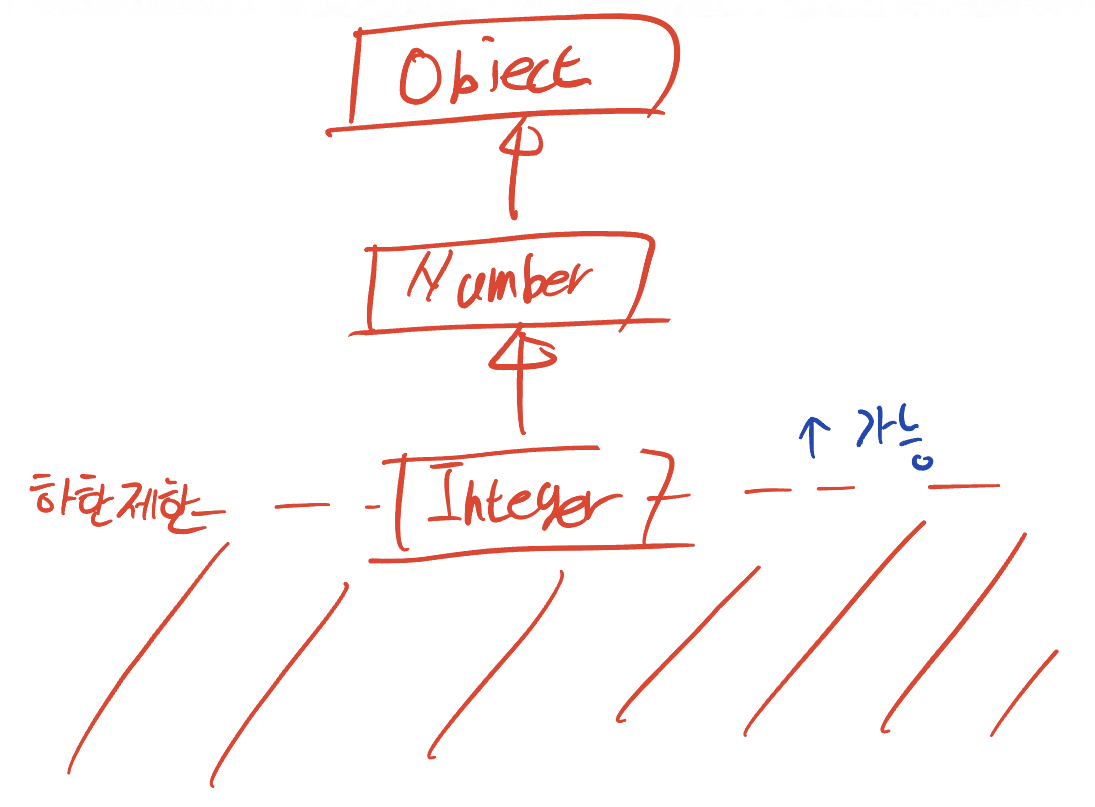 Object
Number
↑ 가능
하한제한
Integer